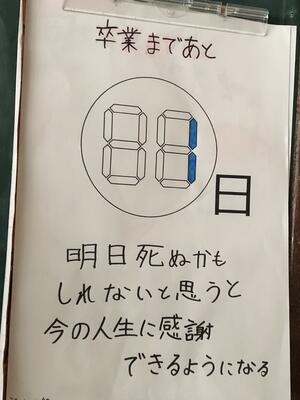 卒業まであと
1日
明日死ぬかも
しれないと思うと
今の人生に感謝
できるようになる